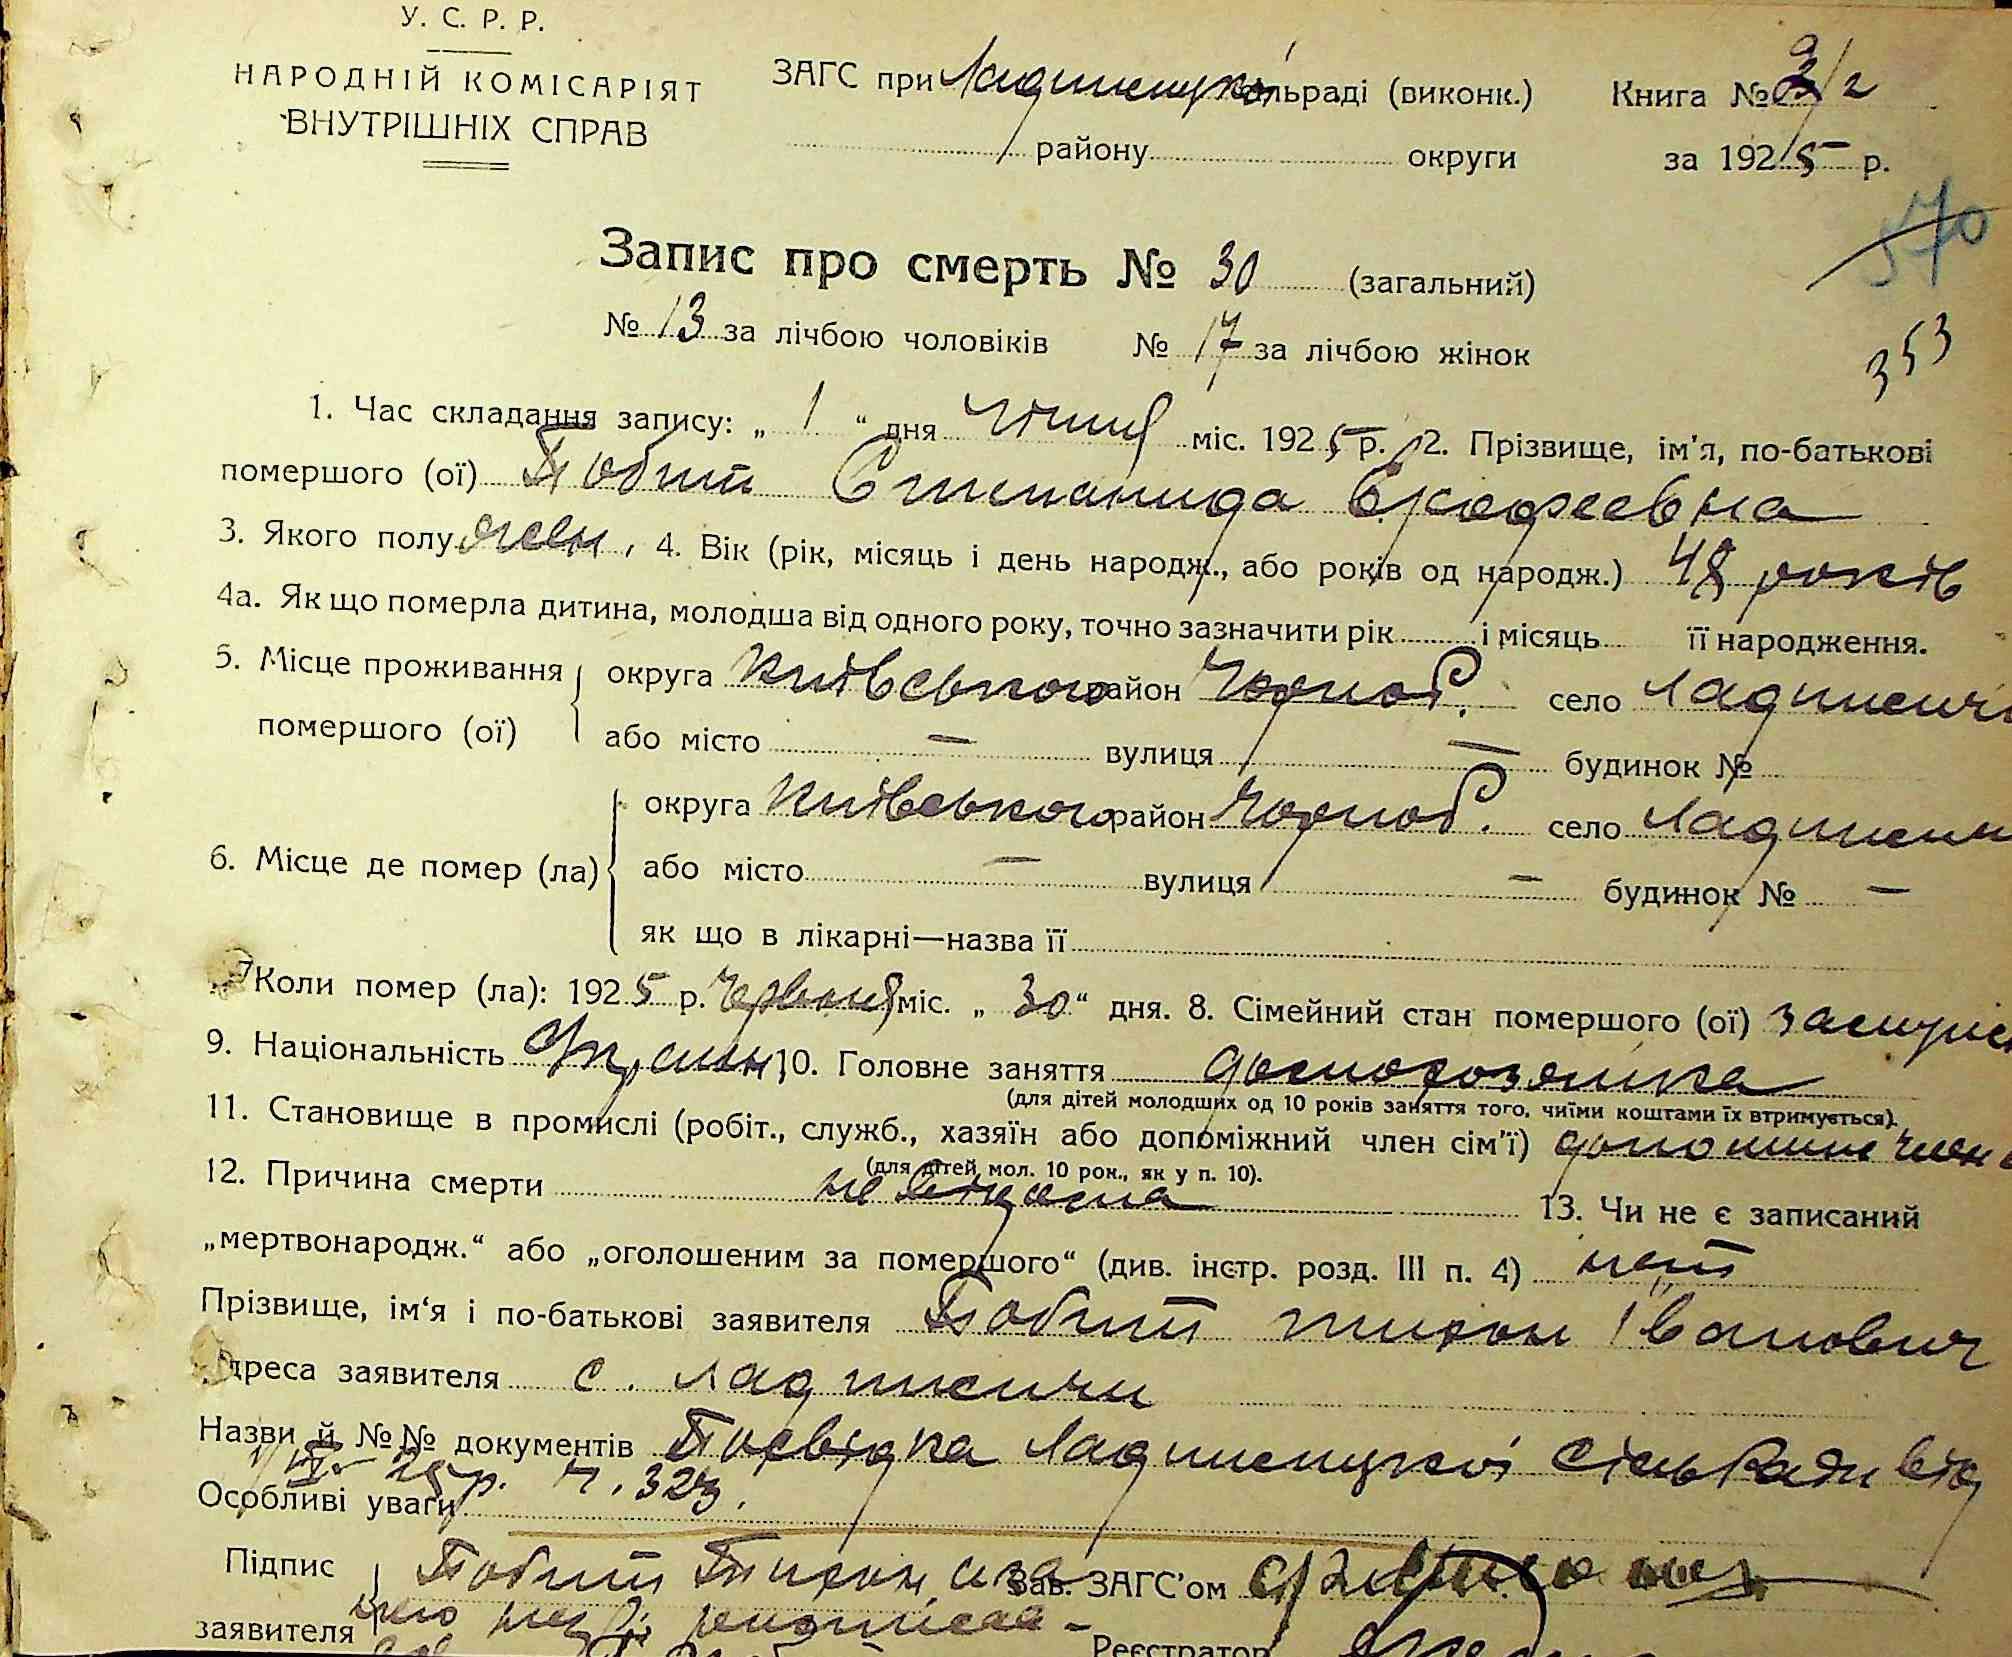 У. С. Р. Р.
НАРОДНІЙ КОМІСАРІЯТ
ВНУТРІШНІХ СПРАВ
ЗАГС при Ладижицкої сільраді (виконк.)
району округи
Книга № 3/2
за 1925 р.
570
353
Запис про смерть № 30 (загальний)
№ 13 за лічбою чоловіків № 17 за лічбою жінок
1. Час складання запису: „ 1 “ дня Липня міс. 1925 р. 2. Прізвище, ім'я, по-батькові
помершого (ої) Побит Степанида Ерофеевна
3. Якого полу жен. 4. Вік (рік, місяць і день народж., або років од народж.) 48 років
4а. Як що померла дитина, молодша від одного року, точно зазначити рік і місяць її народження.
5. Місце проживання помершого (ої) округа Київського район Чорноб. село Ладижичі
або місто — вулиця — будинок №
6. Місце де помер (ла) округа Київського район Чорноб. село Ладижичи
або місто — вулиця — будинок № —
як що в лікарні—назва її
7 Коли помер (ла): 1925 р. Червня міс. „ 30 “ дня. 8. Сімейний стан помершого (ої)
9. Національність Україн. 10. Головне заняття домогозяйка
(для дітей молодших од 10 років заняття того, чиїми коштами їх втримується).
11. Становище в промислі (робіт., служб., хазяїн або допоміжний член сім'ї) член
(для дітей мол. 10 рок., як у п. 10).
12. Причина смерти невідома 13. Чи не є записаний
„мертвонародж.“ або „оголошеним за помершого“ (див. інстр. розд. III п. 4) нет
Прізвище, ім‘я і по-батькові заявителя Побит Тихон Іванович
Адреса заявителя с. Ладижичи
Назви й №№ документів Посвідка Ладижицкої сільради від
1/VII 25 р. ч. 323.
Особливі уваги
Підпис заявителя Побит Тихон Зав. ЗАГС'ом
Реєстратор